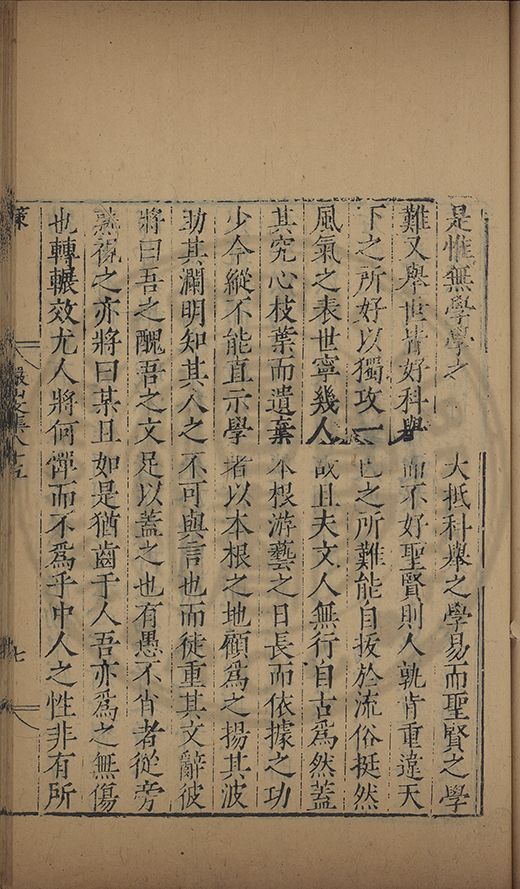 是惟無學學之　大抵科舉之學易而聖賢之學
難又舉世皆好科舉而不好聖賢則人孰肯重違天
下之所好以獨攻一己之所難能自拔於流俗挺然
風氣之表世寧幾人哉且夫文人無行自古為然蓋
其究心枝葉而遺棄本根游藝之日長而依據之功
少今縱不能直示學者以本根之地顧為之揚其波
助其瀾明知其人之不可與言也而徒重其文辭彼
將曰吾之醜吾之文足以蓋之也有愚不省者從旁
熟視之亦將曰某且如是猶齒于人吾亦為之無傷
也轉輾效尤人將何憚而不為乎中人之性非有所
集